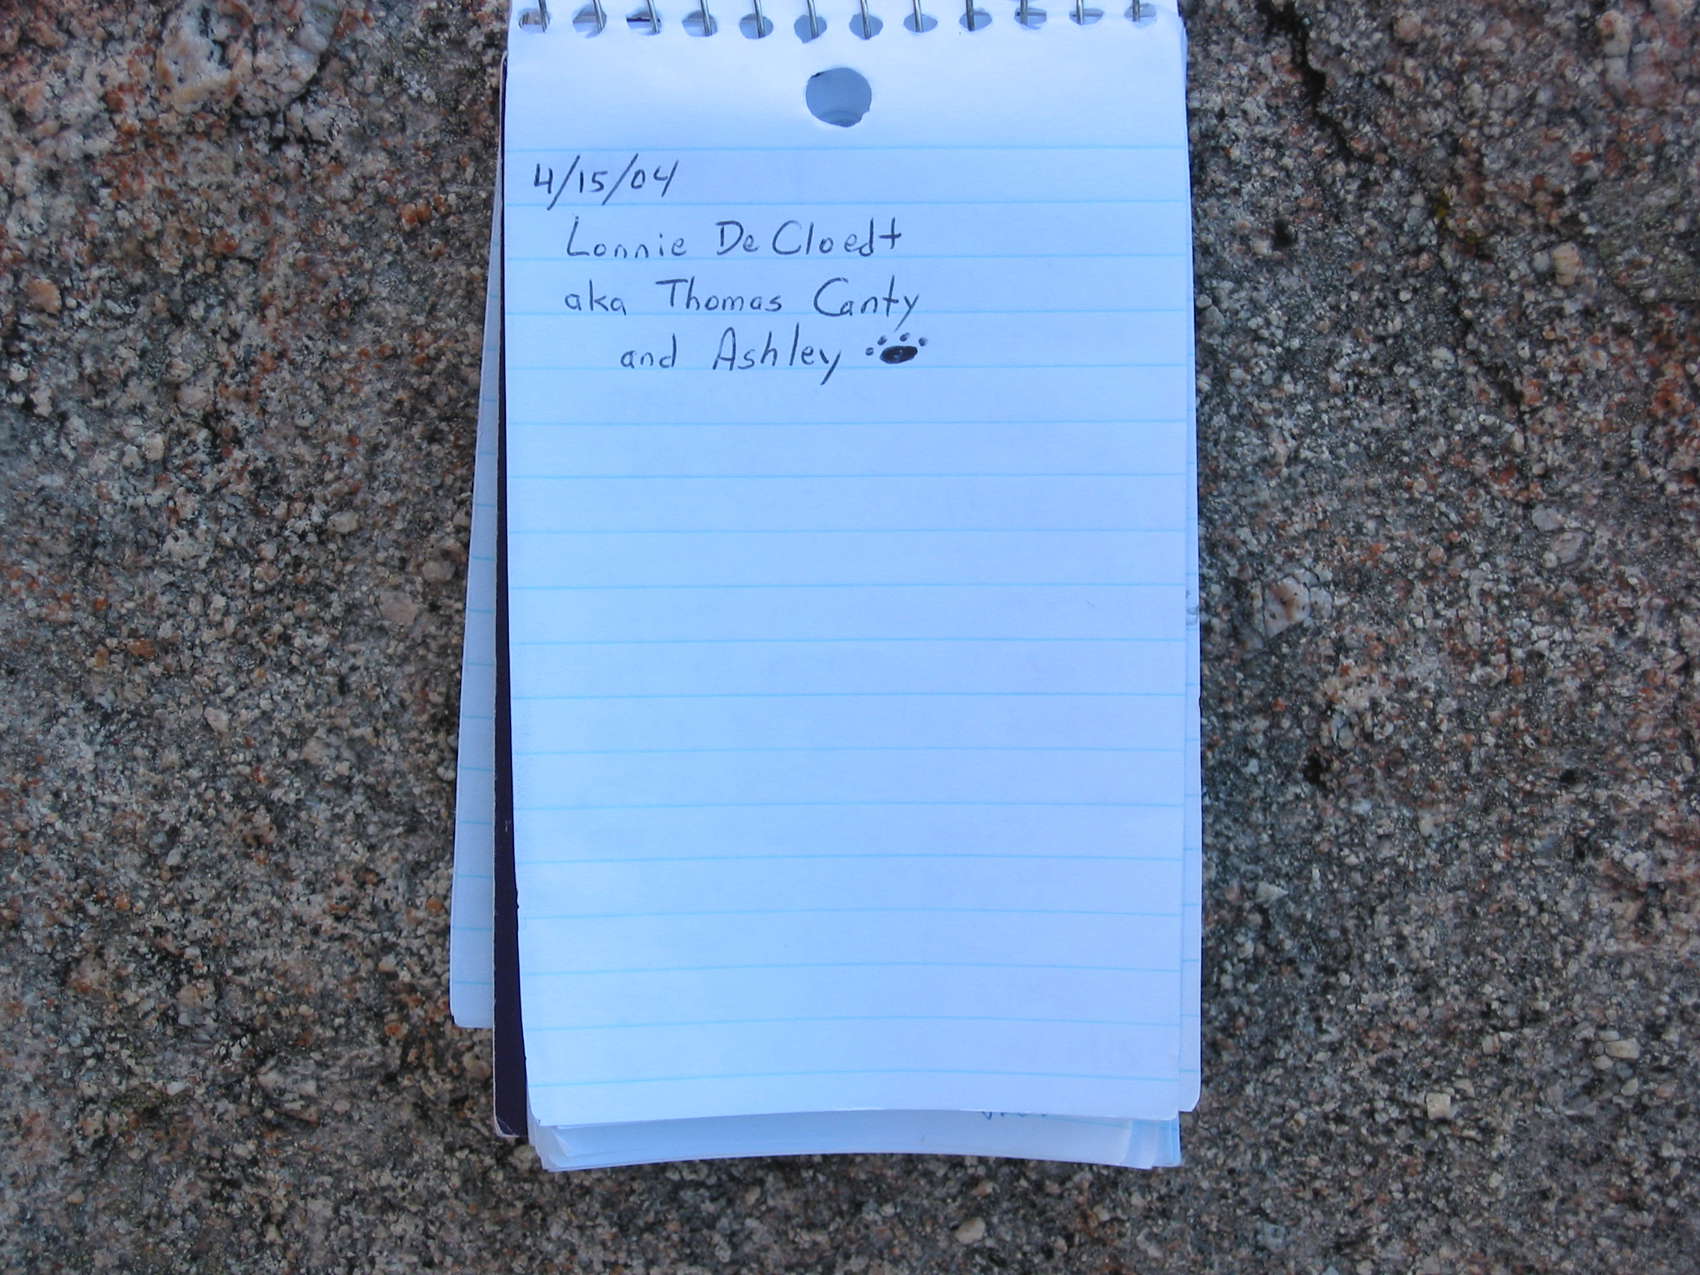 4/15/04
Lonnie DeCloedt
aka Thomas Canty
and Ashley